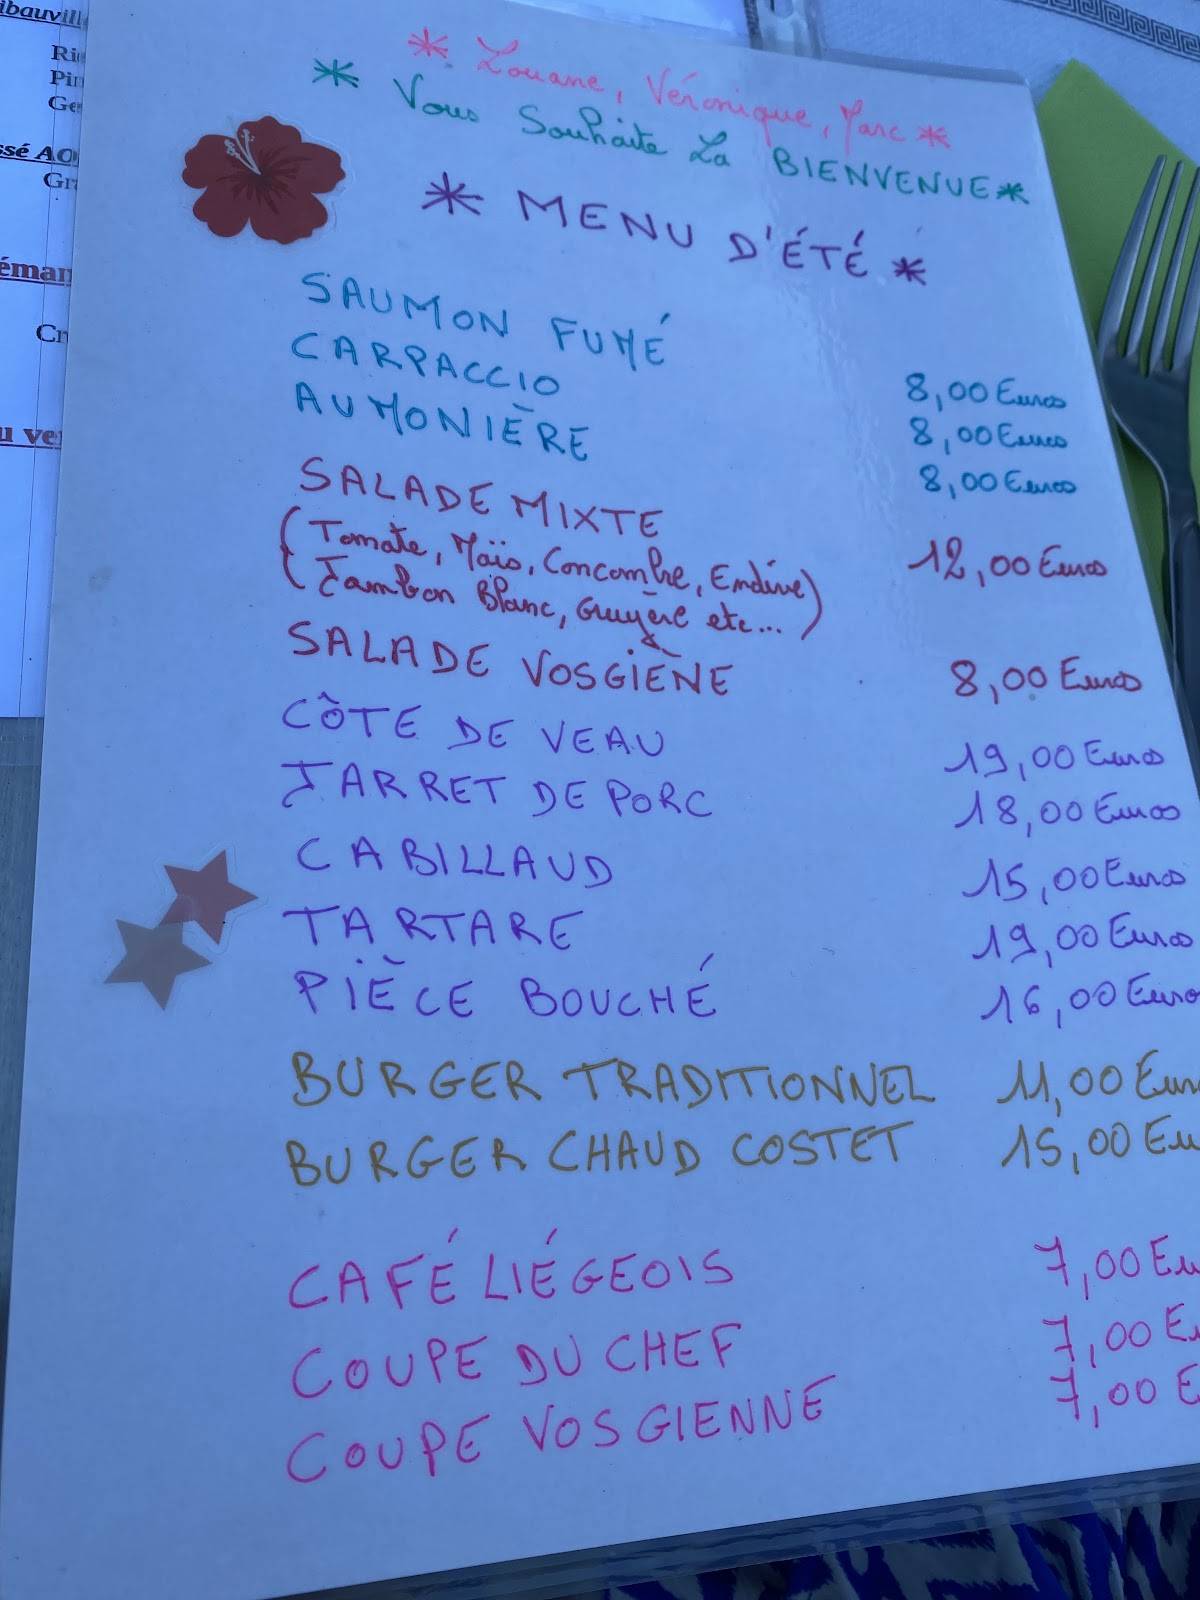 ibauvill
Ri
Pin
Ge
ssé AO
Gr
éman
Cr
u ve
* Louane, Véronique, Marc *
* Vous Souhaite La BIENVENUE *
* MENU D'ÉTÉ *
SAUMON FUMÉ 8,00 Euros
CARPACCIO 8,00 Euros
AUMONIÈRE 8,00 Euros
SALADE MIXTE 12,00 Euros
(Tomate, Maïs, Concombre, Endive)
(Jambon Blanc, Gruyère etc...)
SALADE VOSGIÈNE 8,00 Euros
CÔTE DE VEAU 19,00 Euros
JARRET DE PORC 18,00 Euros
CABILLAUD 15,00 Euros
TARTARE 19,00 Euros
PIÈCE BOUCHÉ 16,00 Euro
BURGER TRADITIONNEL 11,00 Eur
BURGER CHAUD COSTET 15,00 Eu
CAFÉ LIÉGEOIS 7,00 Eu
COUPE DU CHEF 7,00 E
COUPE VOSGIENNE 7,00 E